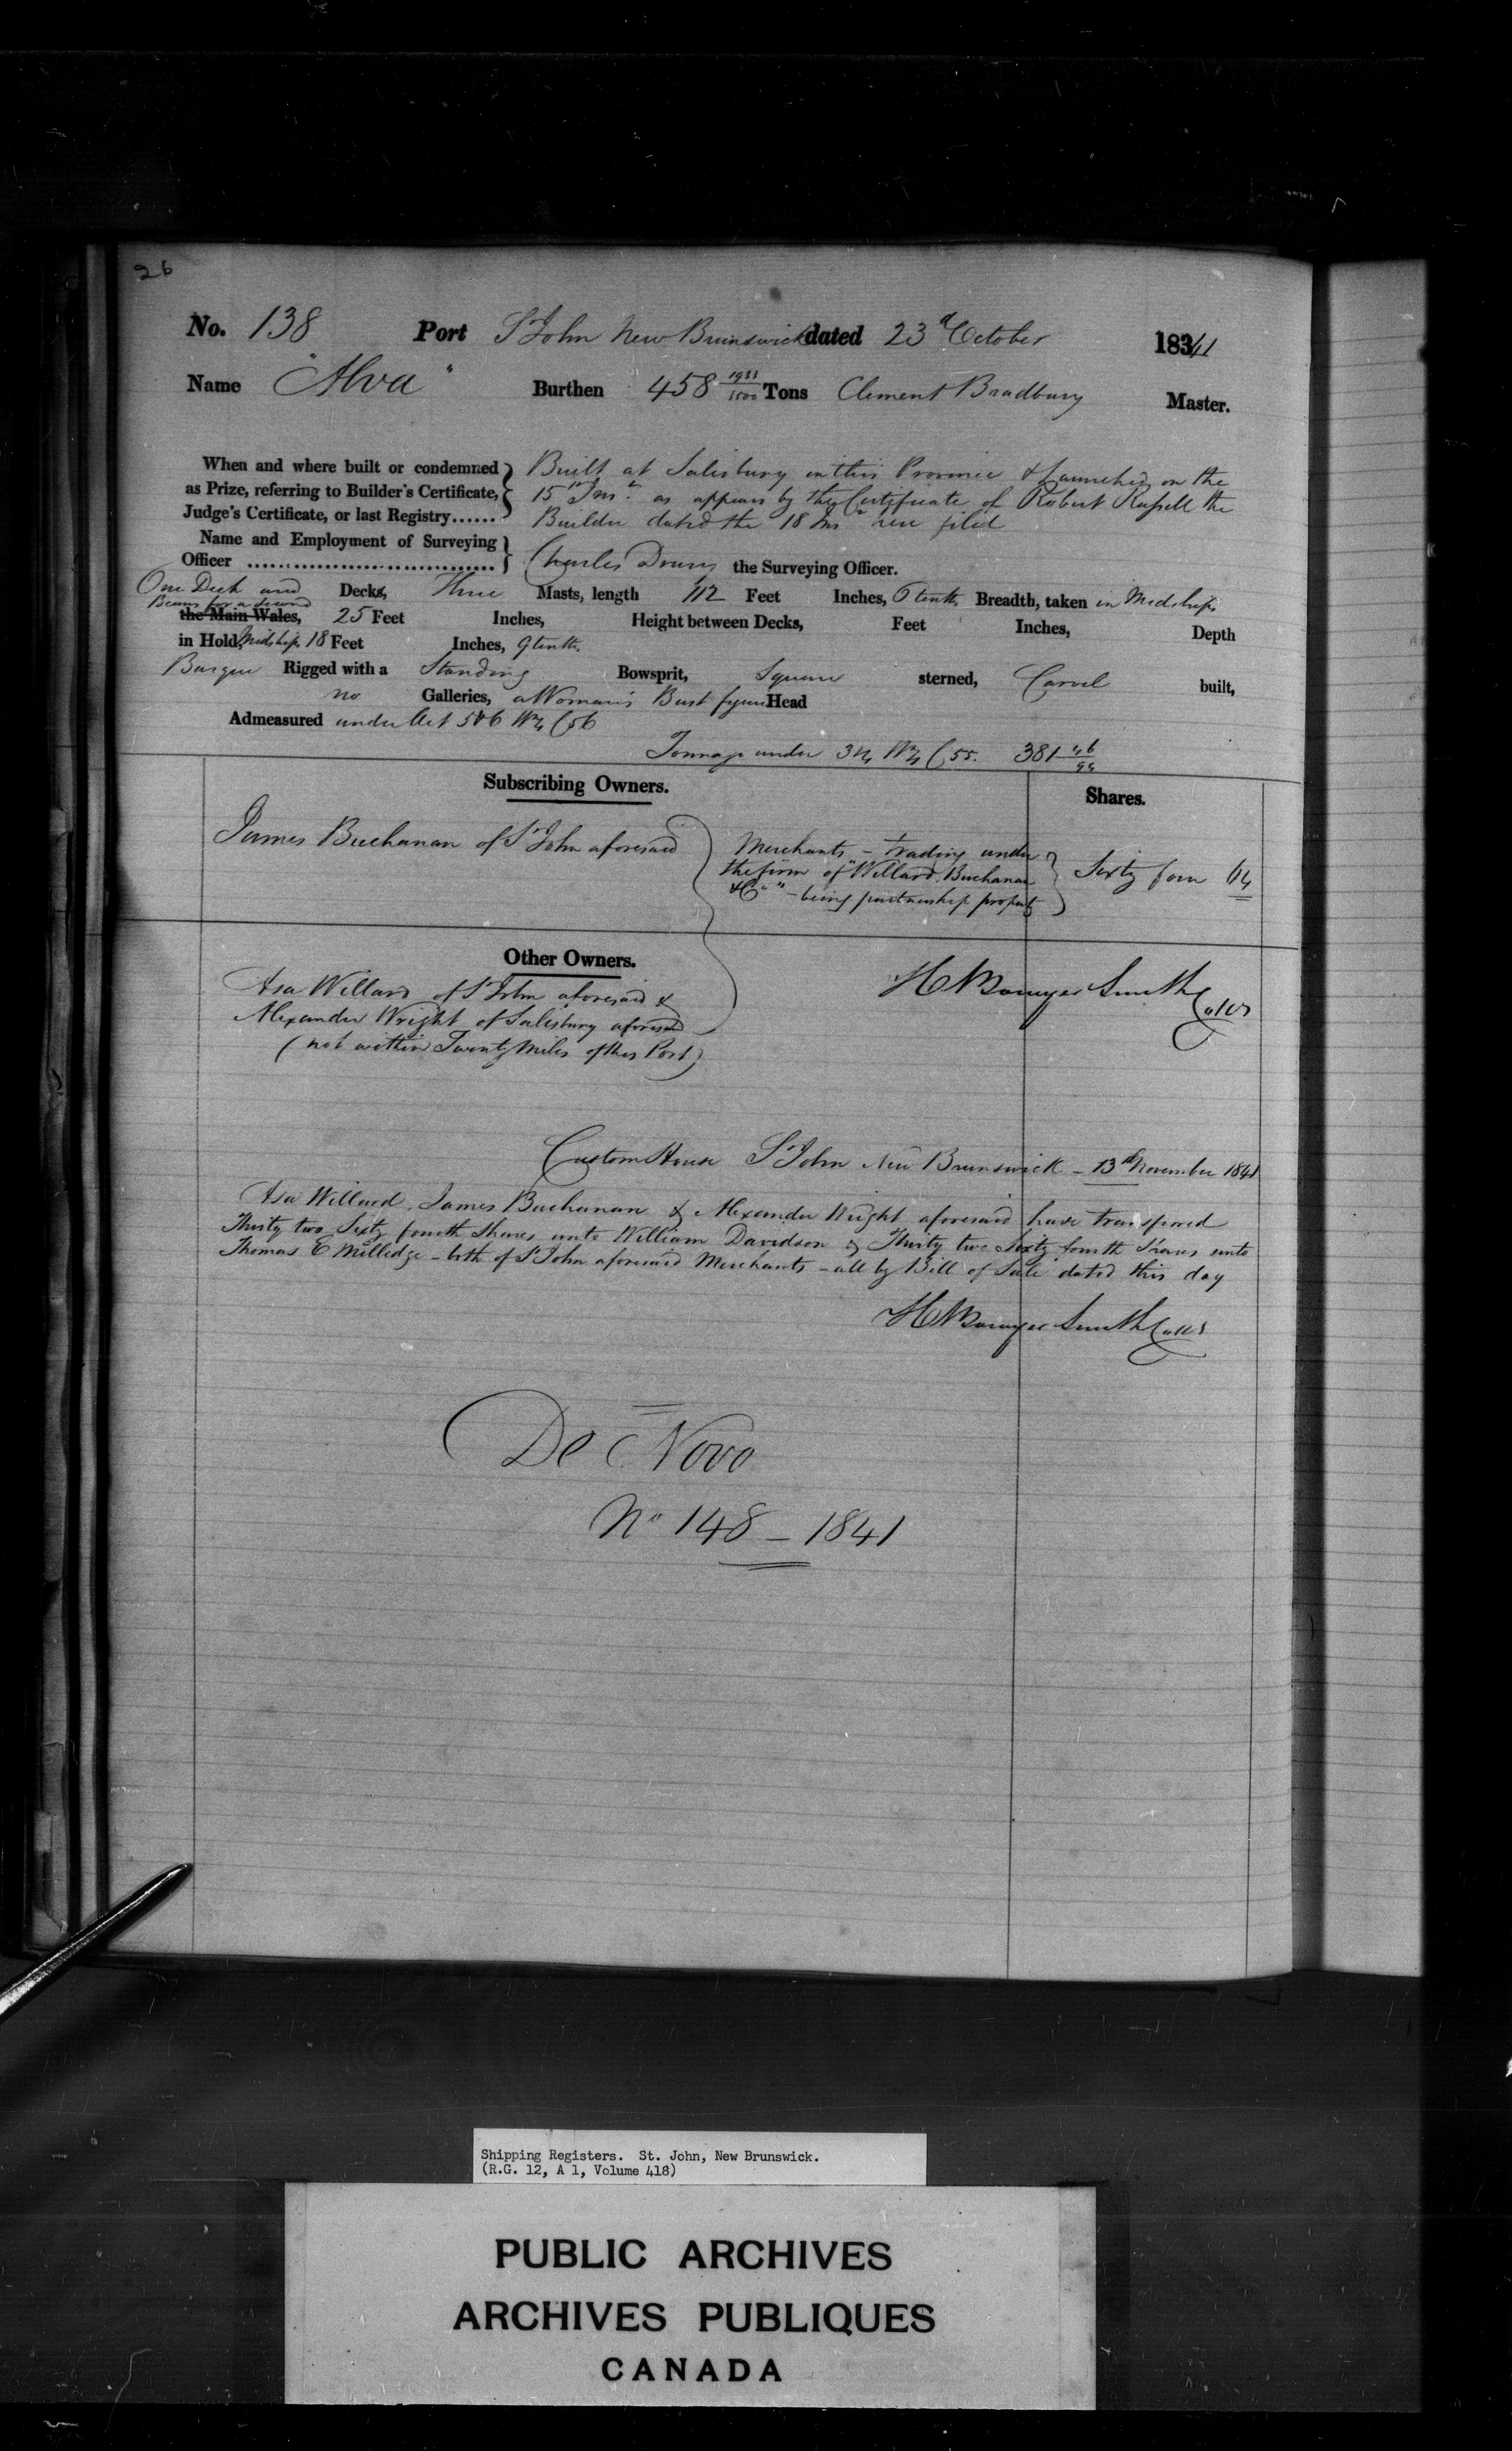 26
No. 138 Port St John New Brunswick dated 23d October 1841
Name "Alva" Burthen 458 Tons Clement Bradbury Master.
When and where built or condemned as Prize, referring to Builder's Certificate, Judge's Certificate, or last Registry......
Built at Salisbury in this Province & Launched on the
15th Inst. as appears by the Certificate of Robert Russell the
Builder dated the 18 Inst here filed
Name and Employment of Surveying Officer
Charles Drury the Surveying Officer.
One Deck and Decks, Three Masts, length 112 Feet Inches, 0 tenths Breadth, taken in Midships
Beams for a Second
the Main Wales, 25 Feet Inches, Height between Decks, Feet Inches, Depth
in Hold, Midships 18 Feet Inches, 9 tenths
Barque Rigged with a Standing Bowsprit, Square sterned, Carvel built,
no Galleries, a Woman's Bust figure Head
Admeasured under Act 5 & 6 Wm 4 C 56
Tonnage under 3 & 4 Wm 4 C 55. 381 46/94
Subscribing Owners. Shares.
James Buchanan of St John aforesaid
Merchants – trading under
the firm of "Willard Buchanan
& Co" – being partnership property
Sixty four 64
Other Owners.
Asa Willard of St John aforesaid &
Alexander Wright of Salisbury aforesaid
(not within Twenty Miles of this Port)
H Bowyer Smith Collr
Custom House St John New Brunswick – 13th November 1841
Asa Willard, James Buchanan & Alexander Wright aforesaid have transferred
Thirty two Sixty fourth Shares unto William Davidson & Thirty two Sixty fourth Shares unto
Thomas E Millidge – both of St John aforesaid Merchants – all by Bill of Sale dated this day
H Bowyer Smith Collr
De Novo
No 148 – 1841
Shipping Registers. St. John, New Brunswick.
(R.G. 12, A 1, Volume 418)
PUBLIC ARCHIVES
ARCHIVES PUBLIQUES
CANADA